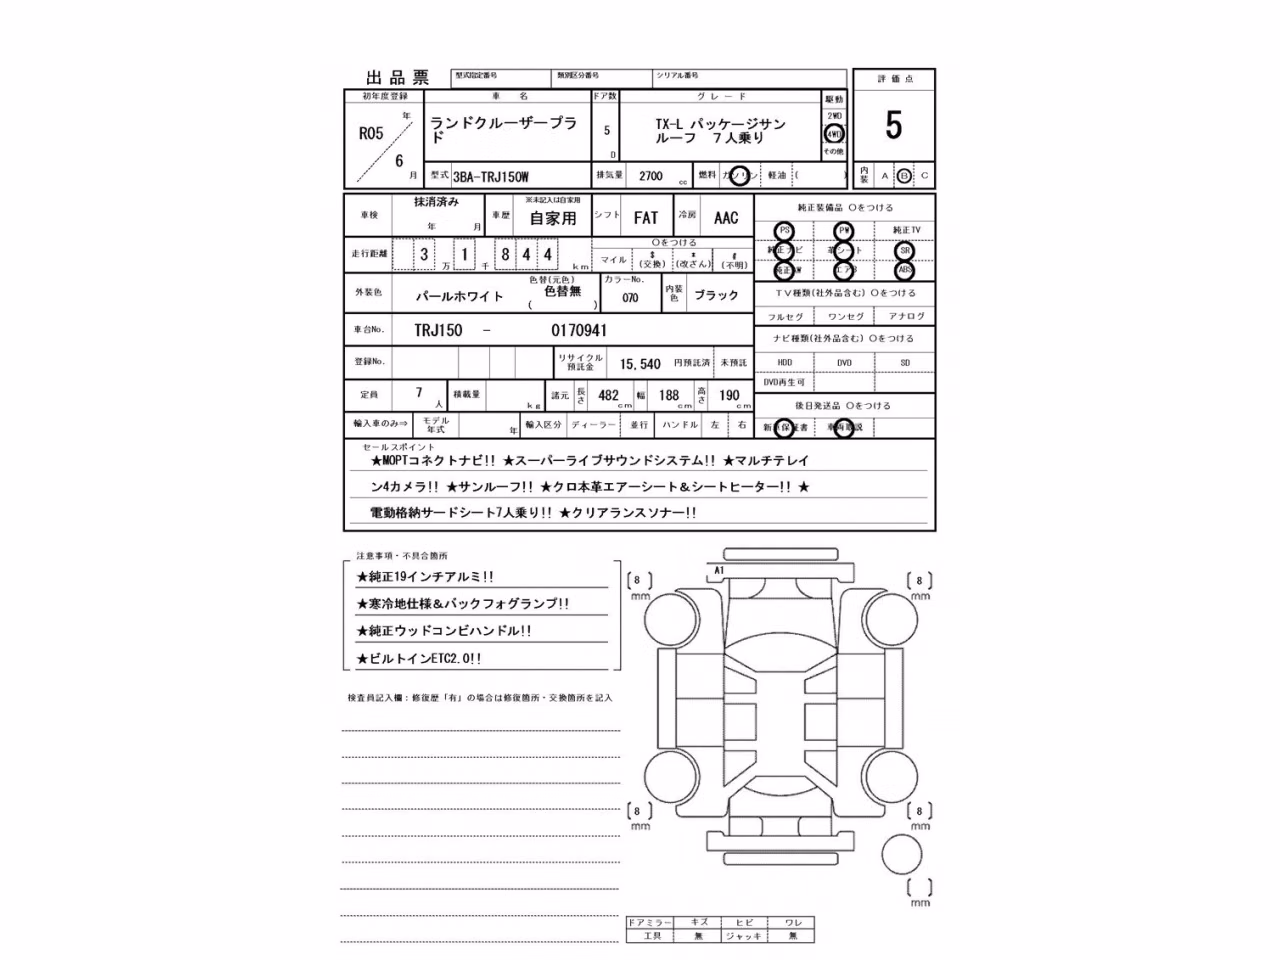 出品票
型式指定番号 類別区分番号 シリアル番号
評価点
5
内装 A B C
初年度登録 車名 ドア数 グレード 駆動
R05 年 6 月
ランドクルーザープラド
5 D
TX-L パッケージサンルーフ 7人乗り
2WD
4WD
その他
型式 3BA-TRJ150W 排気量 2700 cc 燃料 ガソリン 軽油 ( )
車検 抹消済み 年 月 車歴 ※未記入は自家用 自家用 シフト FAT 冷房 AAC
走行距離 3 万 1 千 8 4 4 km
○をつける
マイル $ (交換) * (改ざん) # (不明)
外装色 パールホワイト 色替(元色) 色替無 ( ) カラーNo. 070 内装色 ブラック
車台No. TRJ150 - 0170941
登録No. リサイクル預託金 15,540 円預託済 未預託
定員 7 人 積載量 kg 諸元 長さ 482 cm 幅 188 cm 高さ 190 cm
輸入車のみ⇒ モデル年式 年 輸入区分 ディーラー 並行 ハンドル 左 右
純正装備品 ○をつける
PS PW 純正TV
純正ナビ 革シート SR
純正AW エアB ABS
TV種類(社外品含む) ○をつける
フルセグ ワンセグ アナログ
ナビ種類(社外品含む) ○をつける
HDD DVD SD
DVD再生可
後日発送品 ○をつける
新車保証書 車両取説
セールスポイント
★MOPTコネクトナビ!! ★スーパーライブサウンドシステム!! ★マルチテレイ
ン4カメラ!! ★サンルーフ!! ★クロ本革エアーシート&シートヒーター!! ★
電動格納サードシート7人乗り!! ★クリアランスソナー!!
注意事項・不具合箇所
★純正19インチアルミ!!
★寒冷地仕様&バックフォグランプ!!
★純正ウッドコンビハンドル!!
★ビルトインETC2.0!!
検査員記入欄:修復歴「有」の場合は修復箇所・交換箇所を記入
A1
[ 8 ] mm [ 8 ] mm
[ 8 ] mm [ 8 ] mm
[ ] mm
ドアミラー キズ ヒビ ワレ
工具 無 ジャッキ 無